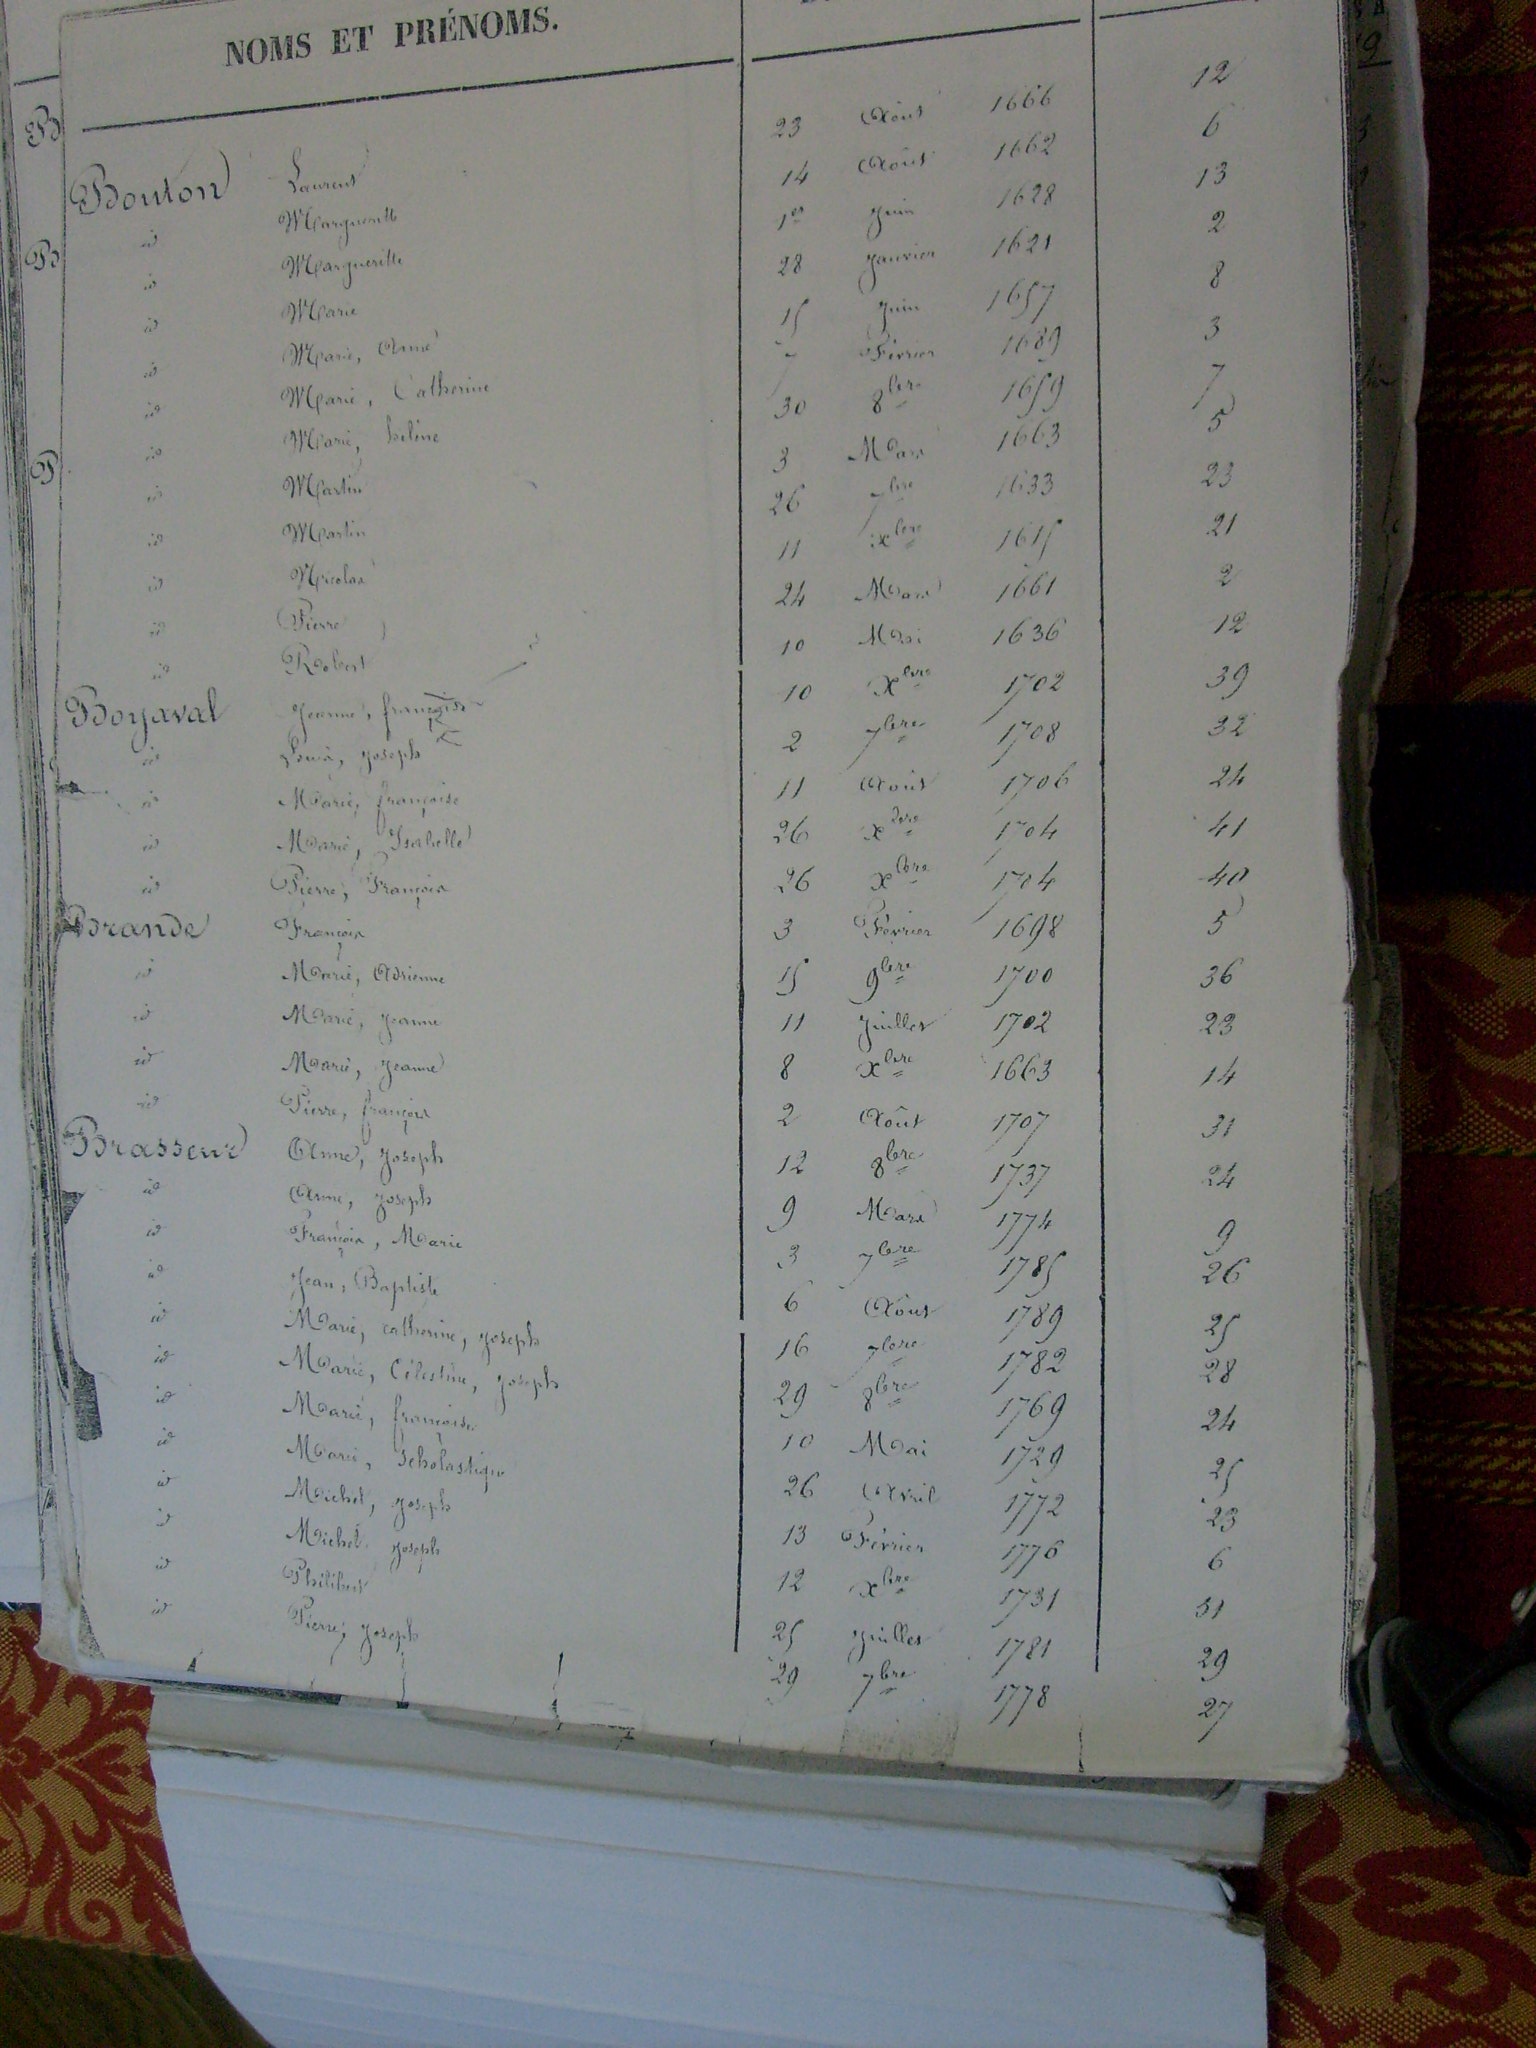 NOMS ET PRÉNOMS.
Bouton Laurent 23 Août 1666 12
id Marguerite 14 Août 1662 6
id Marguerite 1er Juin 1628 13
id Marie 28 Janvier 1621 2
id Marie, Anne 15 Juin 1657 8
id Marie, Catherine 7 Février 1689 3
id Marie, hélène 30 8bre 1659 7
id Martin 3 Mars 1663 5
id Martin 26 7bre 1633 23
id Nicolas 11 xbre 1615 21
id Pierre 24 Mars 1661 2
id Robert 10 Mai 1636 12
Boyaval Jeanne, françoise 10 Xbre 1702 39
id Louis, joseph 2 7bre 1708 32
id Marie, françoise 11 Août 1706 24
id Marie, Isabelle 26 xbre 1704 41
id Pierre, François 26 xbre 1704 40
Brande François 3 Février 1698 5
id Marie, Adrienne 15 9bre 1700 36
id Marie, Jeanne 11 Juillet 1702 23
id Marie, Jeanne 8 Xbre 1663 14
id Pierre, françois 2 Août 1707 31
Brasseur Anne, joseph 12 8bre 1737 24
id Anne, joseph 9 Mars 1774 9
id François, Marie 3 7bre 1785 26
id Jean, Baptiste 6 Août 1789 25
id Marie, catherine, joseph 16 7bre 1782 28
id Marie, Célestine, joseph 29 8bre 1769 24
id Marie, françoise 10 Mai 1729 25
id Marie, Scholastique 26 Avril 1772 23
id Michel, joseph 13 Février 1776 6
id Michel, joseph 12 xbre 1731 31
id Philibert 25 Juillet 1781 29
id Pierre, joseph 29 7bre 1778 27